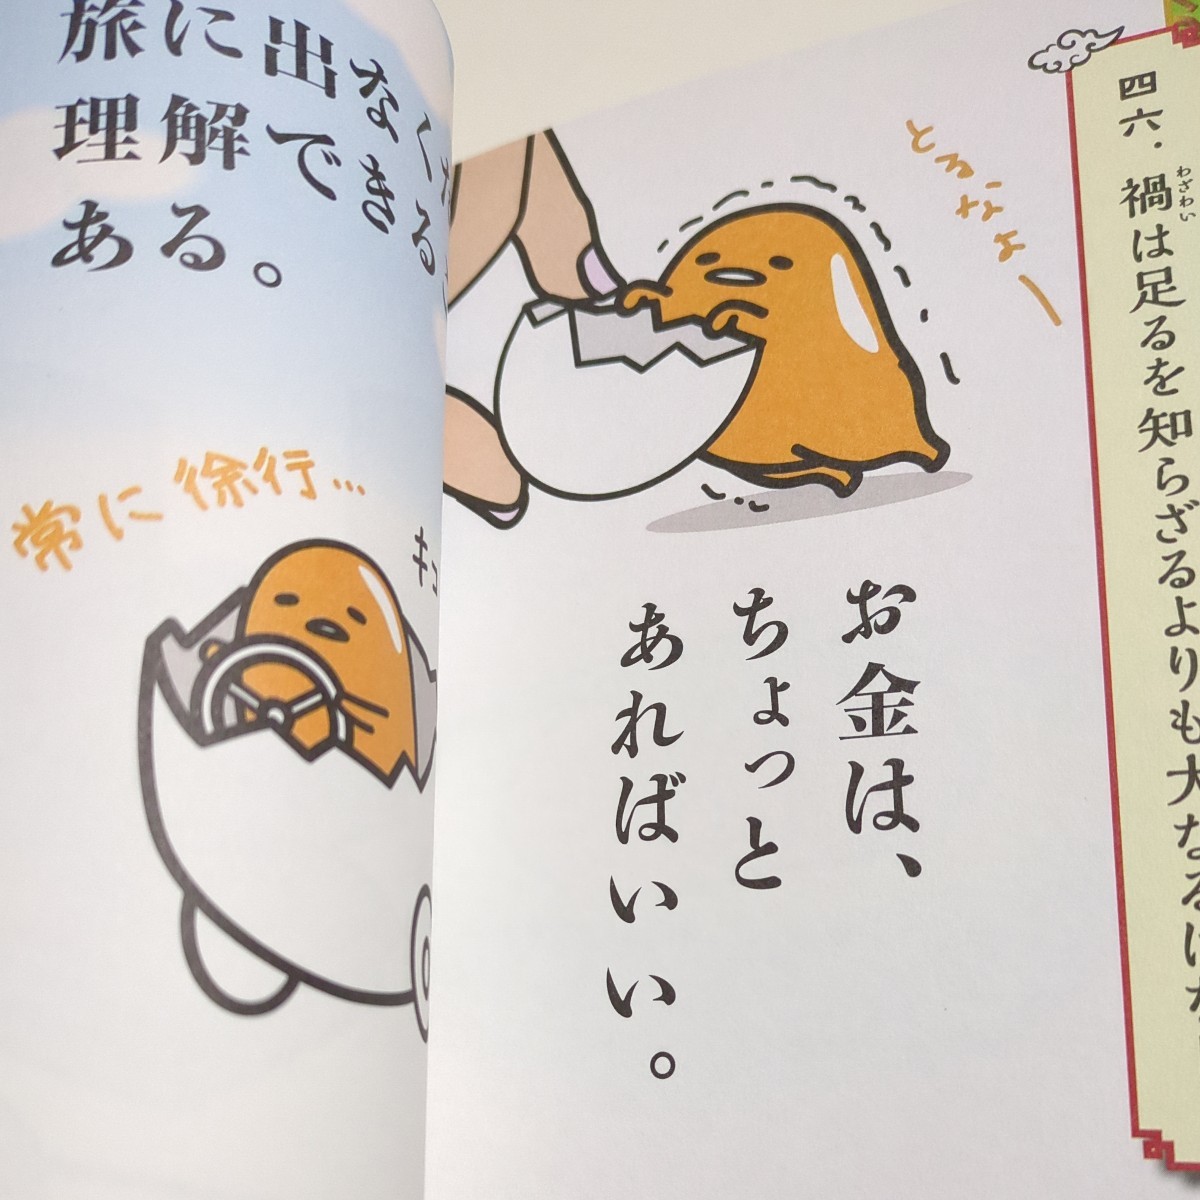 旅に出なくた
理解できる
ある。
常に徐行…
キュ
四六．禍は足るを知らざるよりも大なるはな
わざわい
とるなよー
お金は、
ちょっと
あればいい。